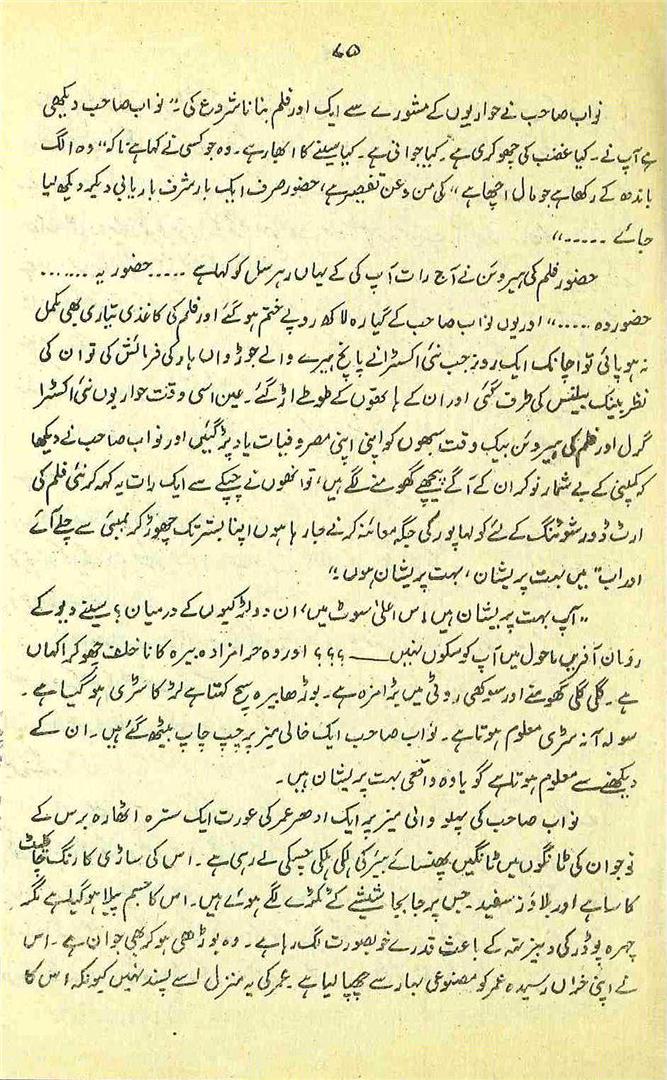 ۶۵
نواب صاحب نے حواریوں کے مشورے سے ایک اور فلم بنانا شروع کی:" نواب صاحب دیکھی
ہے آپ نے۔ کیا غضب کی چھوکری ہے۔ کیا جوانی ہے۔ کیا سینے کا ابھار ہے۔ وہ جو کسی نے کہا ہے نا کہ" وہ الگ
باندھ کے رکھا ہے جو مال اچھا ہے" کی من و عن تفسیر ہے، حضور صرف ایک بار شرف باریابی دیکر دیکھ لیا
جائے ....."
حضور فلم کی ہیروئن نے آج رات آپ کی کے یہاں رہرسل کو کہا ہے ..... حضور یہ .......
حضور وہ ....." اور یوں نواب صاحب کے گیارہ لاکھ روپے ختم ہو گئے اور فلم کی کاغذی تیاری بھی مکمل
نہ ہو پائی تو اچانک ایک روز جب نئی اکسٹرا نے پانچ ہیرے والے جوڑواں ہار کی فرمائش کی تو ان کی
نظر بینک بیلنس کی طرف گئی اور ان کے ہاتھوں کے طوطے اڑ گئے۔ عین اسی وقت حواریوں نئی اکسٹرا
گرل اور فلم کی ہیروئن بیک وقت سبھوں کو اپنی اپنی مصروفیات یاد پڑ گئیں اور نواب صاحب نے دیکھا
کہ کمپنی کے بے شمار نوکر ان کے آگے پیچھے گھومنے لگے ہیں، تو انھوں نے چپکے سے ایک رات یہ کہہ کر نئی فلم کی
اوٹ ڈور شوٹنگ کے لئے کولہاپور کی جگہ معائنہ کرنے جا رہا ہوں اپنا بستر تک چھوڑ کر بمبئی سے چلے آئے
اور اب" میں بہت پریشان، بہت پریشان ہوں:"
"آپ بہت پریشان ہیں، اس اعلیٰ سوٹ میں، ان دو لڑکیوں کے درمیان؟ سیلنے ویو کے
رومان آفریں ماحول میں آپ کو سکوں نہیں ــــ ؟؟؟ اور وہ حرامزادہ بیرہ کا ناخلف چھوکرا کہاں
ہے۔ گلی گلی گھومنے اور سوکھی روٹی میں بڑا مزہ ہے۔ بوڑھا بیرہ سچ کہتا ہے لڑکا سڑی ہو گیا ہے۔
سولہ آنہ سڑی معلوم ہوتا ہے۔ نواب صاحب ایک خالی میز پر چپ چاپ بیٹھ گئے ہیں۔ ان کے
دیکھنے سے معلوم ہوتا ہے گویا وہ واقعی بہت پریشان ہیں۔
نواب صاحب کی پہلو والی میز پر ایک ادھر عمر کی عورت ایک سترہ اٹھارہ برس کے
نوجوان کی ٹانگوں میں ٹانگیں پھنسائے بیئر کی ہلکی ہلکی چسکی لے رہی ہے۔ اس کی ساڑی کا رنگ چاکلیٹ
کا سا ہے اور بلاؤز سفید۔ جس پر جا بجا شیشے کے ٹکڑے لگے ہوئے ہیں۔ اس کا جسم پلپلا ہو گیا ہے مگر
چہرہ پوڈر کی دبیز تہہ کے باعث قدرے خوبصورت لگ رہا ہے۔ وہ بوڑھی ہو کر بھی جوان ہے۔ اس
نے اپنی خزاں رسیدہ عمر کو مصنوعی بہار سے چھپا لیا ہے۔ عمر کی یہ منزل اسے پسند نہیں کیونکہ اس کا